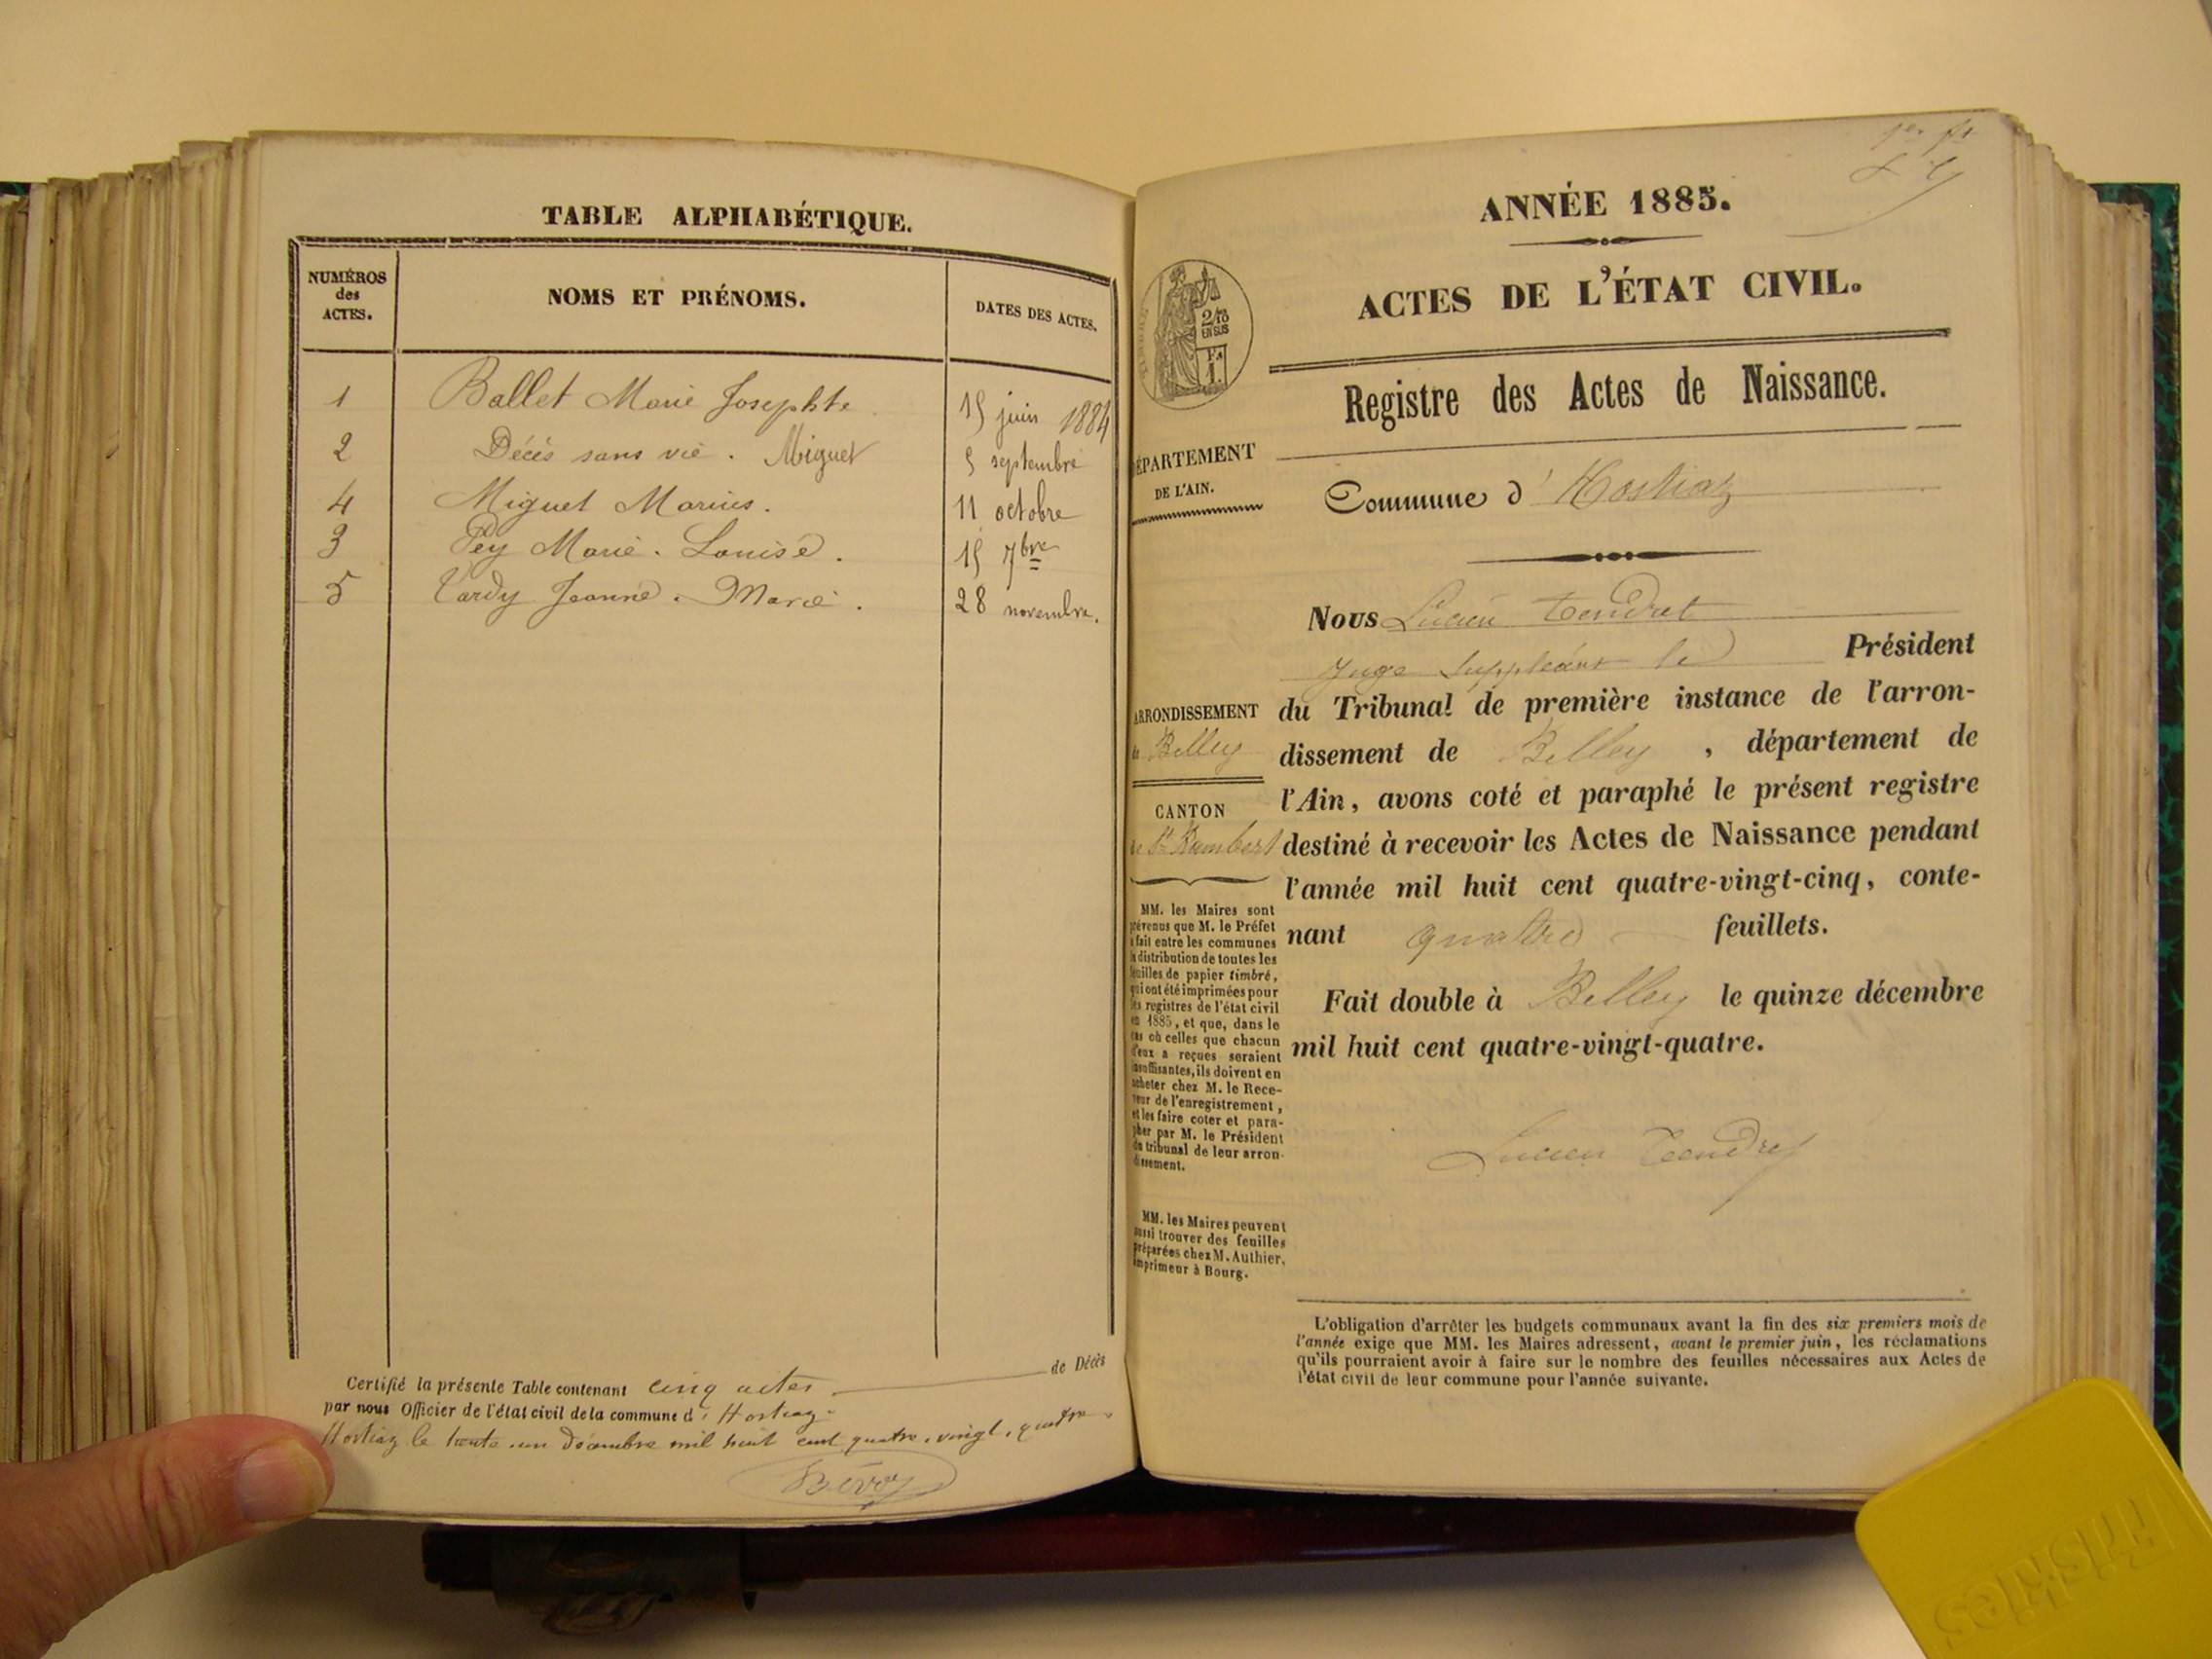 TABLE ALPHABÉTIQUE.
NUMÉROS des ACTES.
NOMS ET PRÉNOMS.
DATES DES ACTES.
1 Ballet Marie Josephte 15 juin 1884
2 Décès sans vie. Miguet 5 septembre
4 Miguet Marius. 11 octobre
3 Pey Marie. Louise. 15 7bre
5 Tardy Jeanne. Marie. 28 novembre.
Certifié la présente Table contenant cinq actes de Décès
par nous Officier de l'état civil de la commune d'Hostiaz
Hostiaz le trente un décembre mil huit cent quatre.vingt.quatre
ANNÉE 1885.
ACTES DE L'ÉTAT CIVIL.
2/10
EN SUS
Fr
1.
Registre des Actes de Naissance.
DÉPARTEMENT
DE L'AIN.
Commune d'Hostiaz
Nous Lucien Tendret
Juge Suppléant le Président
du Tribunal de première instance de l'arron-
dissement de Belley, département de
l'Ain, avons coté et paraphé le présent registre
destiné à recevoir les Actes de Naissance pendant
l'année mil huit cent quatre-vingt-cinq, conte-
nant quatre feuillets.
Fait double à Belley le quinze décembre
mil huit cent quatre-vingt-quatre.
Lucien Tendret
ARRONDISSEMENT
de Belley
CANTON
de St Rambert
MM. les Maires sont
prévenus que M. le Préfet
a fait entre les communes
la distribution de toutes les
feuilles de papier timbré,
qui ont été imprimées pour
les registres de l'état civil
en 1885, et que, dans le
cas où celles que chacun
d'eux a reçues seraient
insuffisantes, ils doivent en
acheter chez M. le Rece-
veur de l'enregistrement,
et les faire coter et para-
pher par M. le Président
du tribunal de leur arron-
dissement.
MM. les Maires peuvent
aussi trouver des feuilles
préparées chez M. Authier,
imprimeur à Bourg.
L'obligation d'arrêter les budgets communaux avant la fin des six premiers mois de
l'année exige que MM. les Maires adressent, avant le premier juin, les réclamations
qu'ils pourraient avoir à faire sur le nombre des feuilles nécessaires aux Actes de
l'état civil de leur commune pour l'année suivante.
Friskies